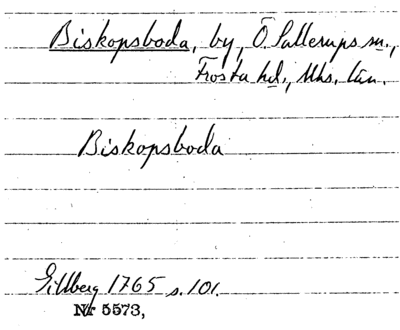 Biskopsboda, by, Ö. Sallerups sn.,
Frosta hd., Mhs. län.
Biskopsboda
Gillberg 1765 s. 101.
Nr 5573,